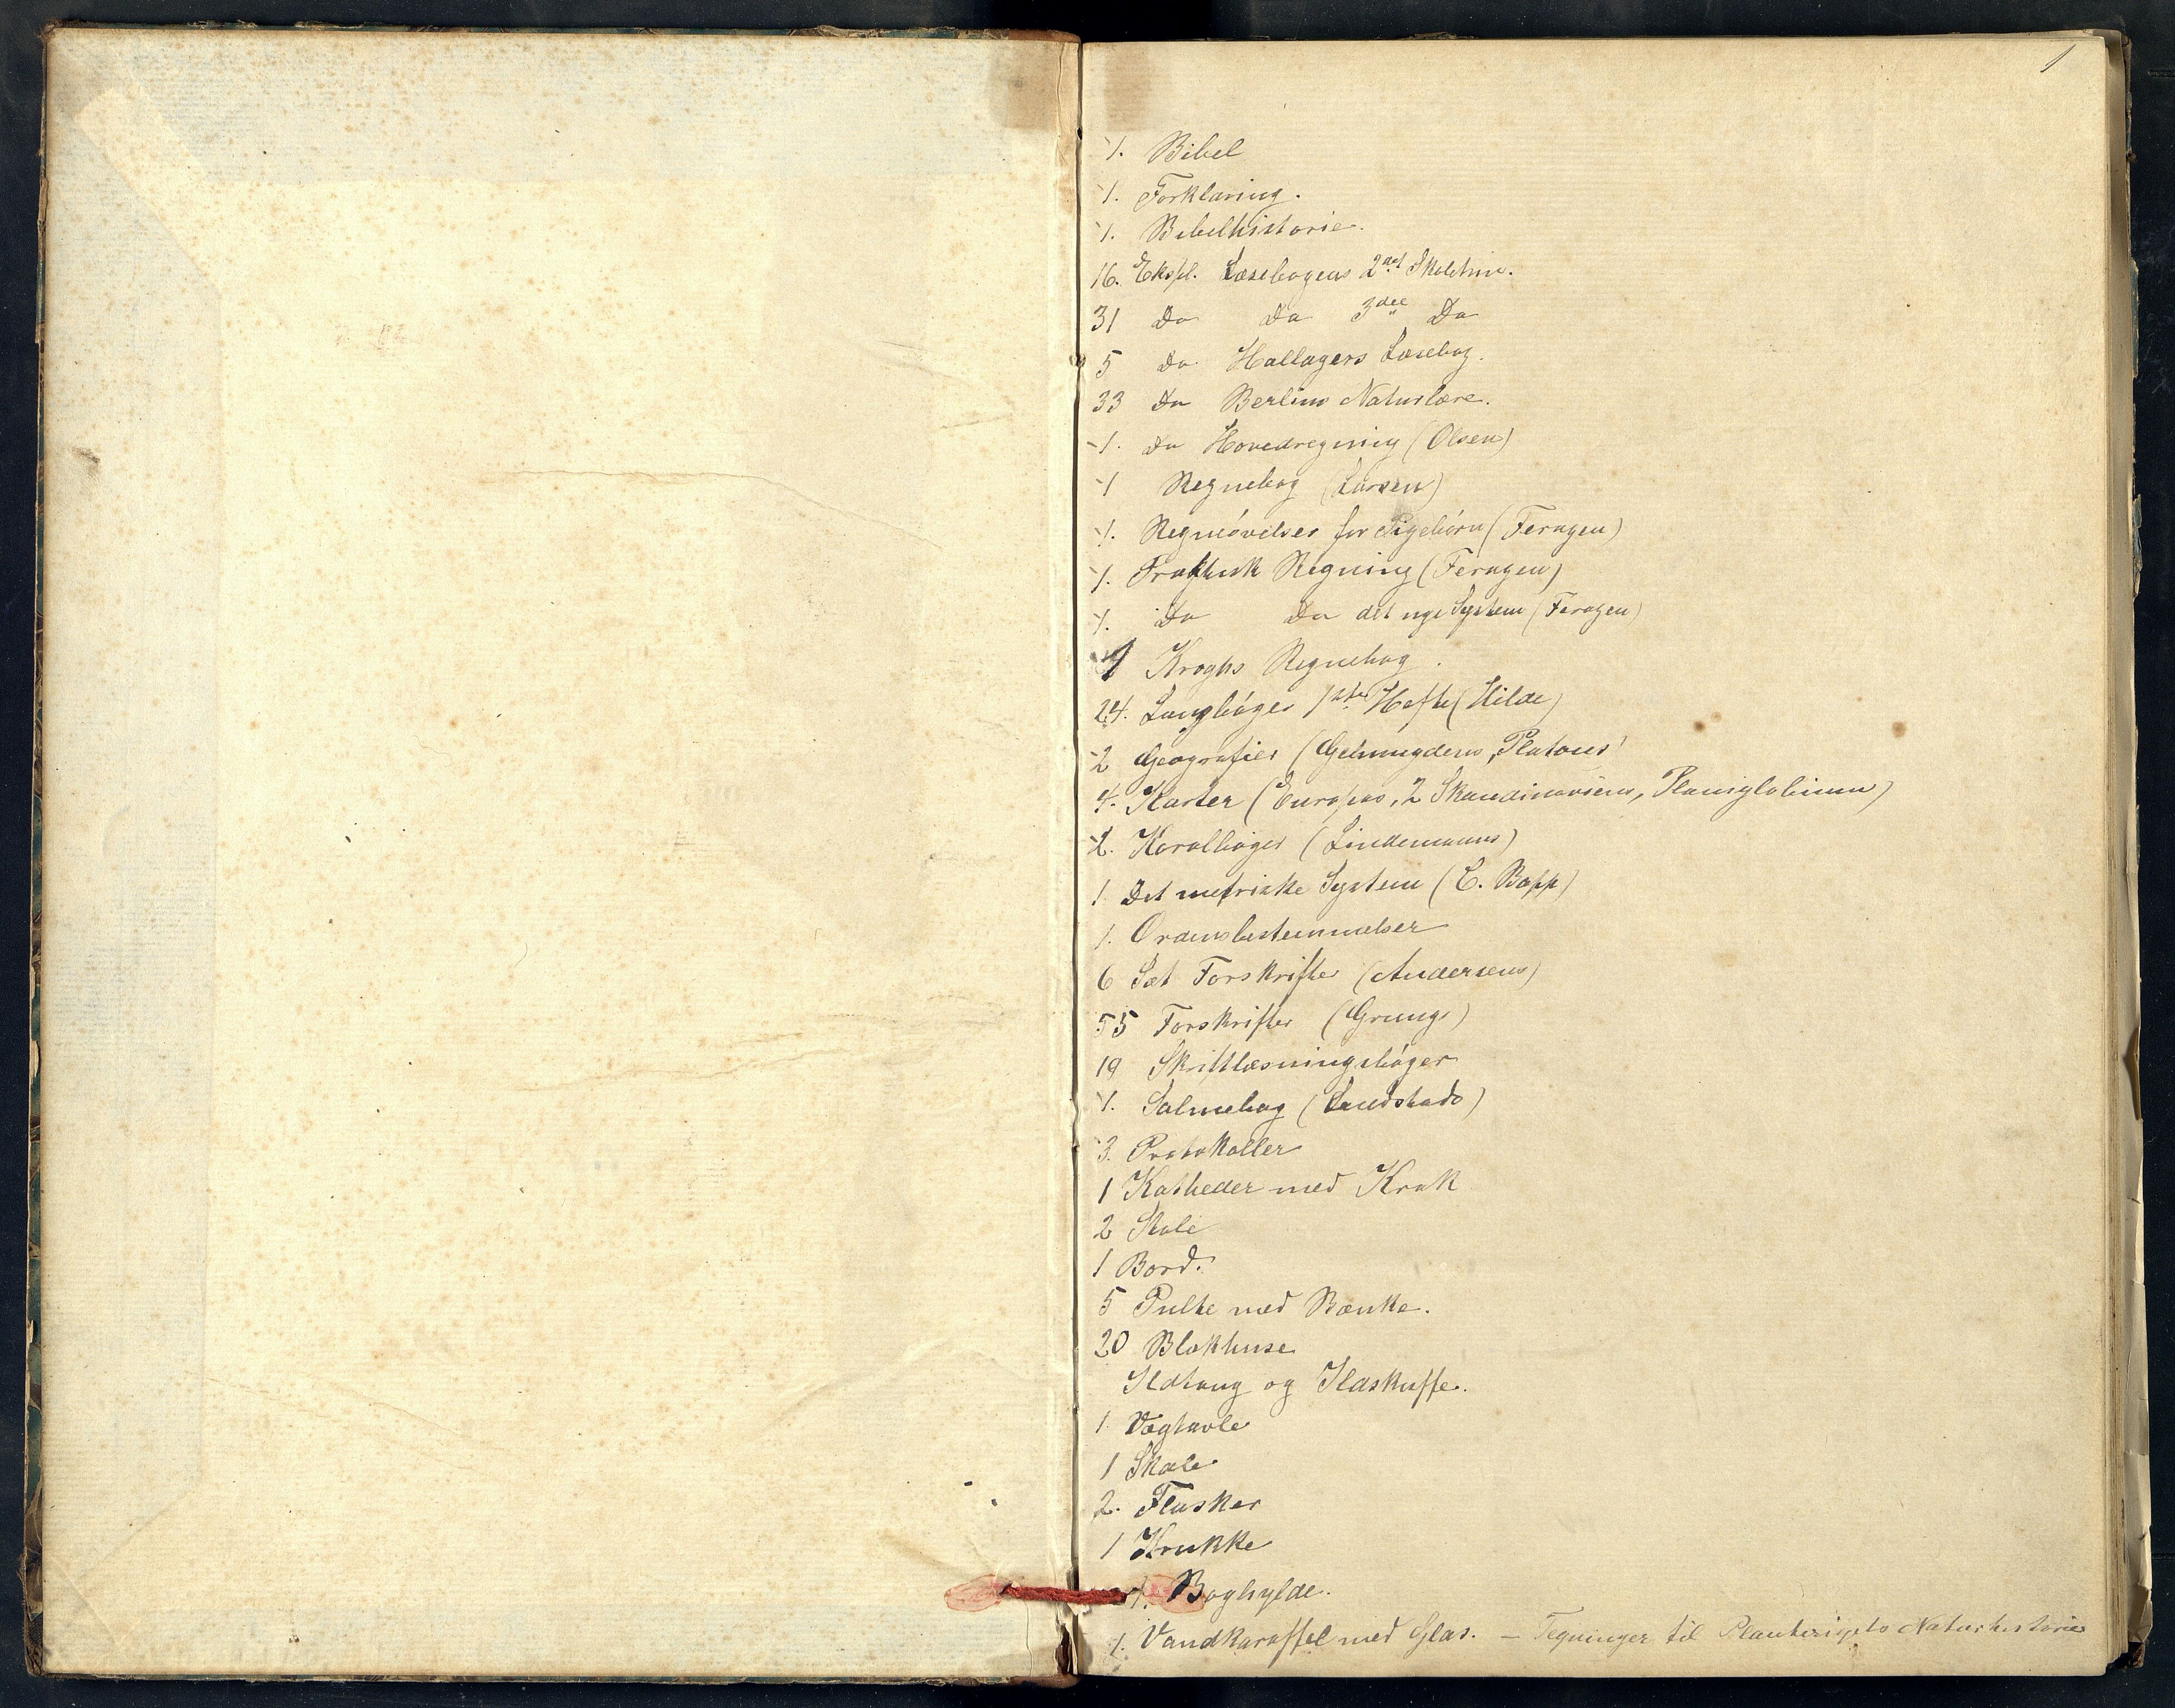 1
1. Bibel
1. Forklaring.
1. Bibelhistorie.
16. Ekspl. Læsebogens 2det Skoletrin.
31 Do Do 3die Do
5 Do Hallagers Læsebog.
33 Do Berlins Naturlære.
1. Do Hovedregning (Olsen)
1 Regnebog (Larsen)
1. Regneövelser for Pigebörn (Feragen)
1. Praktisk Regning (Feragen)
1. Do Do det nye System (Feragen)
1 Kroghs Regnebog.
24. Sangböger 1ste Hefte (Hilde)
2 Geografier (Geelmuydens, Platous)
4. Karter (Europas, 2 Skandinaviens, Planiglobium)
2. Koralböger (Lindemanns)
1 Det metriske System (C. Bopp)
1. Ordensbestemmelser
6 Sæt Forskrifter (Andersens)
55 Forskrifter (Grungs)
19 Skriftlæsningsböger
1. Salmebog (Landstads)
3. Protokoller
1 Katheder med Krak
2 Stole
1 Bord.
5 Pulte med Bænke.
20 Blækhuse
Ildtang og Ildskuffe.
1. Vægtavle
1 Skole
2. Flasker
1 Krukke
1. Boghylde.
1. Vandkaraffel med Glas. — Tegninger til Planterigets Naturhistorie